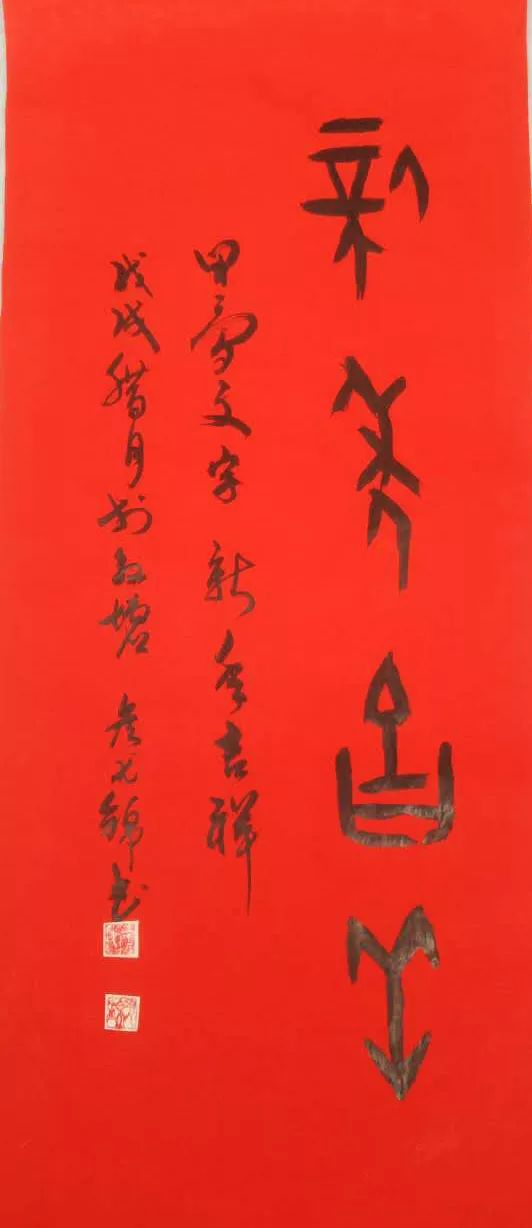 新年吉羊
甲骨文字 新年吉祥
戊戌腊月 书